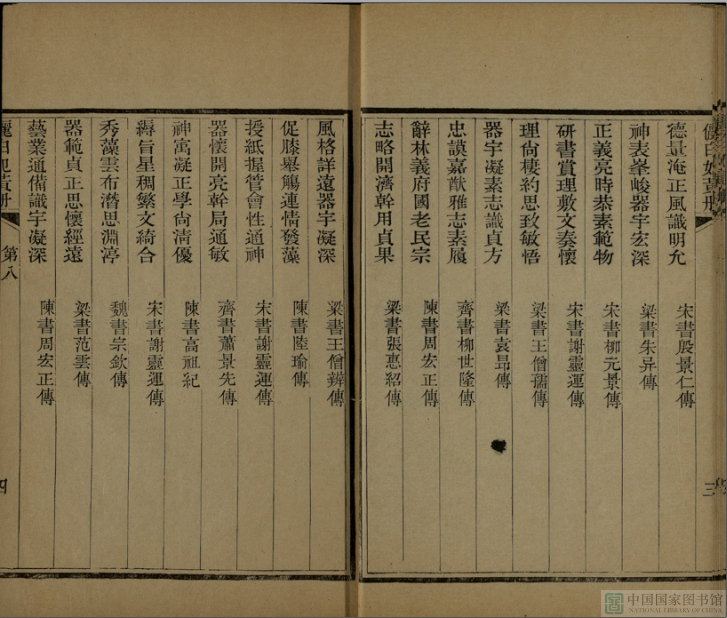 儷白妃黃册
德量淹正風識明允 宋書殷景仁傳
神表峯峻器宇宏深 梁書朱异傳
正義亮時恭素範物 宋書柳元景傳
研書賞理敷文奏懷 宋書謝靈運傳
理尚棲約思致敏悟 梁書王僧孺傳
器宇凝素志識貞方 梁書袁昂傳
忠謨嘉猷雅志素履 齊書柳世隆傳
辭林義府國老民宗 陳書周宏正傳
志略開濟幹用貞果 梁書張惠紹傳
三
風格詳遠器宇凝深 梁書王僧辨傳
促膝舉觴連情發藻 陳書陸瑜傳
授紙握管會性通神 宋書謝靈運傳
器懷開亮幹局通敏 齊書蕭景先傳
神寓凝正學尚淸優 陳書高祖紀
縟旨星稠繁文綺合 宋書謝靈運傳
秀藻雲布濳思淵渟 魏書宗欽傳
器範貞正思懷經遠 梁書范雲傳
藝業通備識宇凝深 陳書周宏正傳
儷白妃黃册 第八 四
中国国家图书馆
NATIONAL LIBRARY OF CHINA